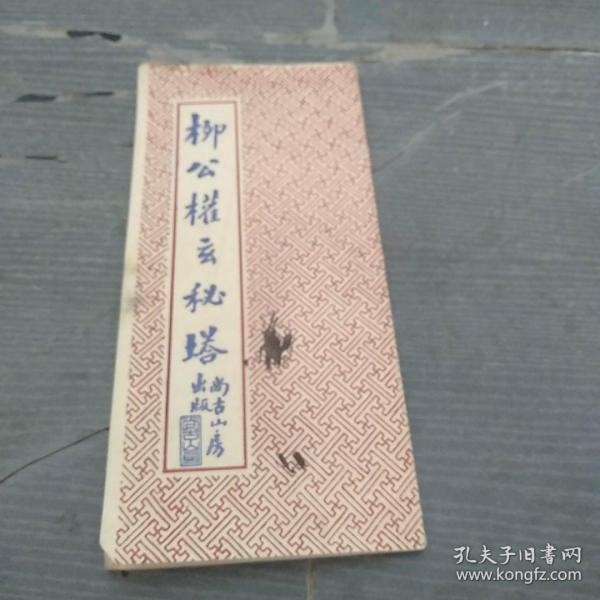 柳公權玄秘塔
尚古山房
出版
孔夫子旧书网
www.kongfz.com